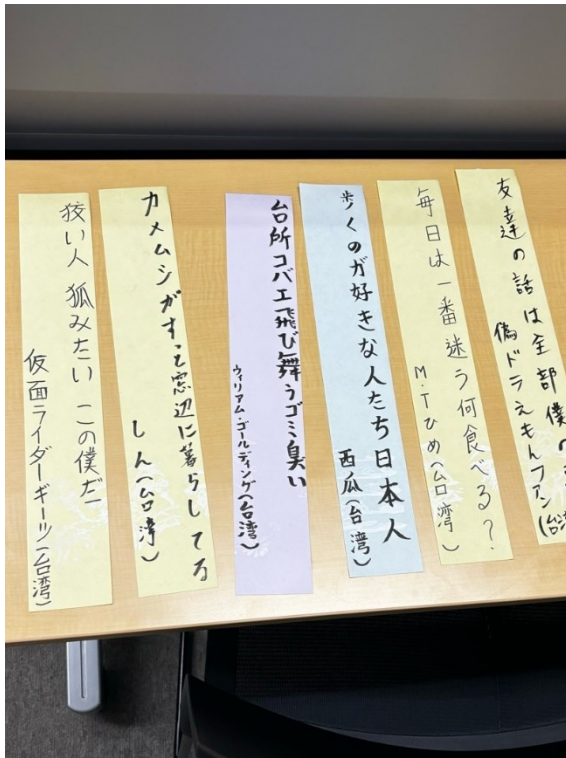 友達の話は全部僕の
偽ドラえもんファン(台湾
毎日は一番迷う何食べる?
M・Tひめ(台湾)
歩くのが好きな人たち日本人
西瓜(台湾)
台所コバエ飛び舞うゴミ臭い
ウィリアム・ゴールディング(台湾)
カメムシがずっと窓辺に暮らしてる
しん(台湾)
狡い人 狐みたい この僕だ
仮面ライダーギーツ(台湾)